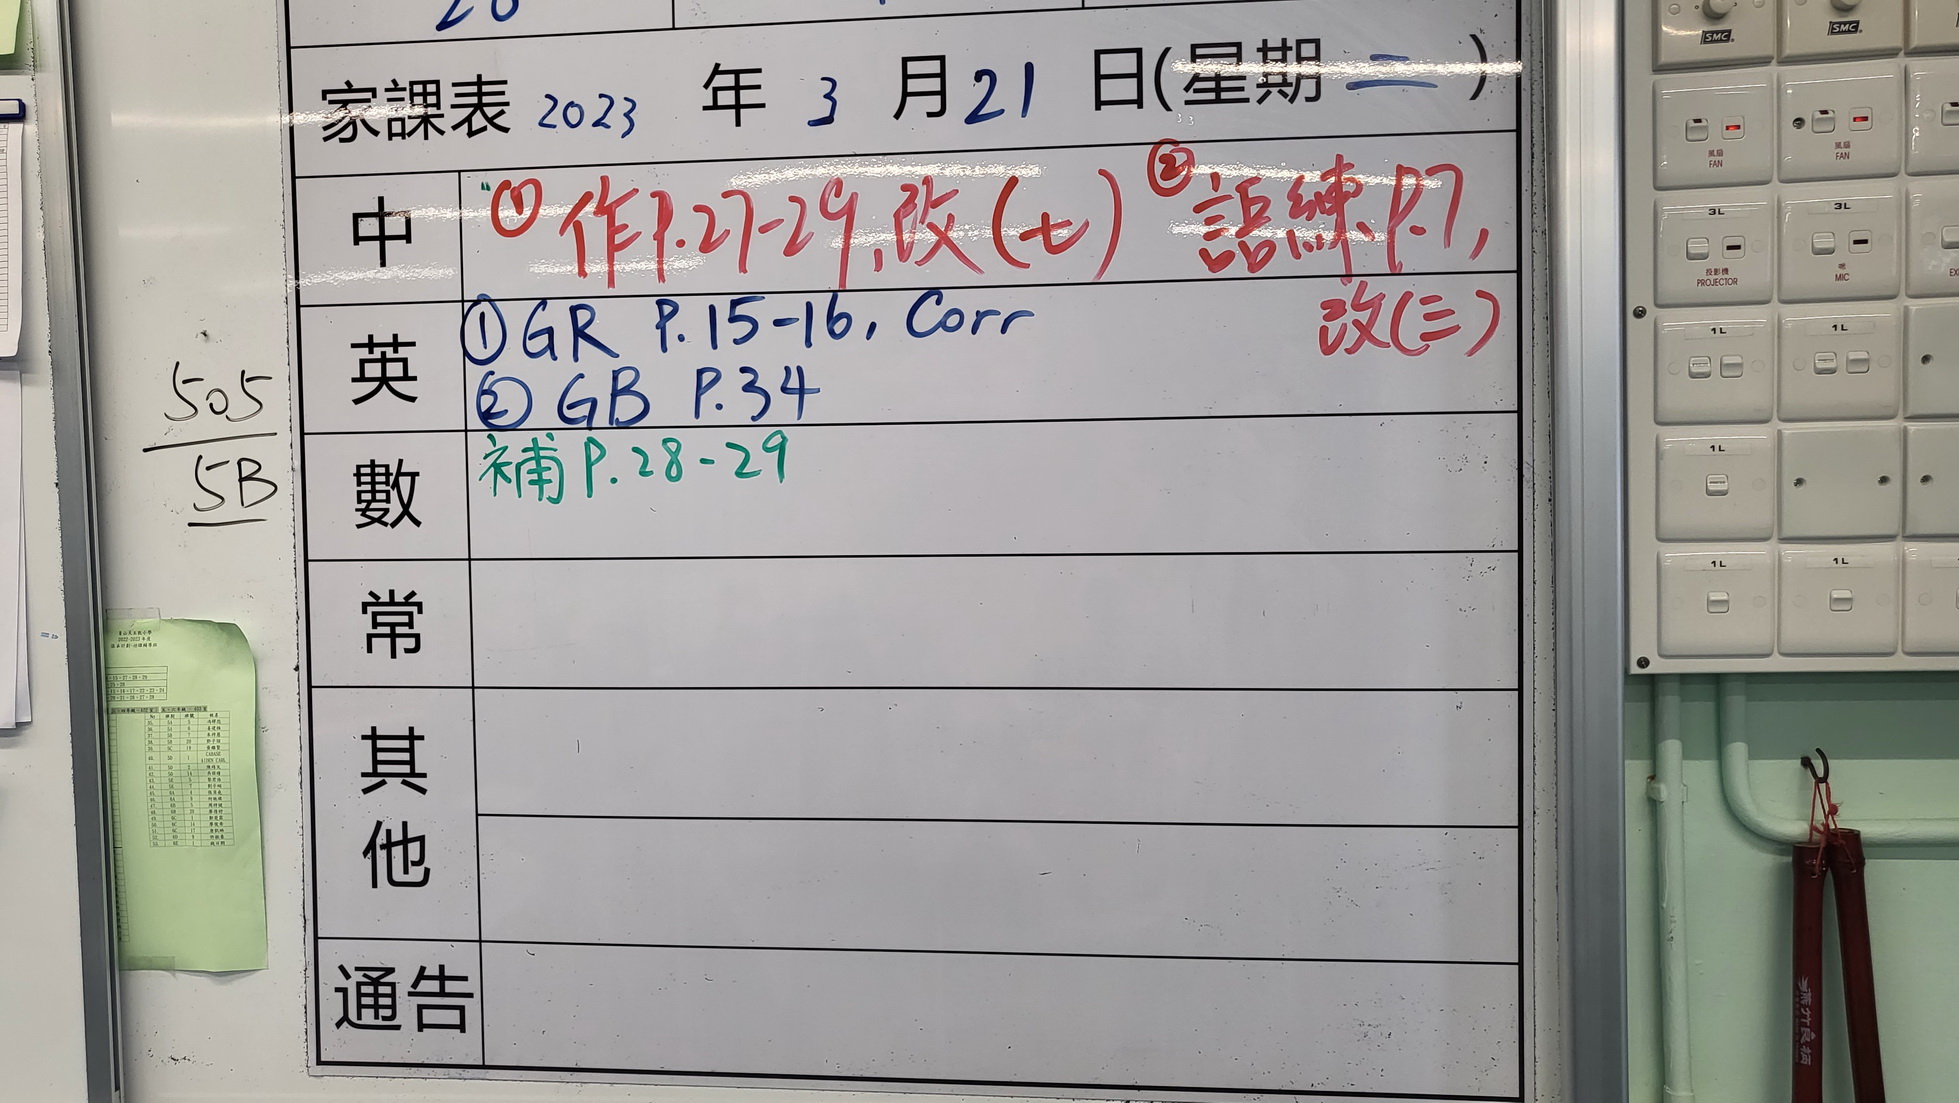 家課表 2023 年 3 月 21 日(星期二)
中 ① 作P.27-29,改(七) ② 語練P.7,
改(三)
英 ① GR P.15-16, Corr
② GB P.34
數 補P.28-29
常
其他
通告
505
5B
SMC
SMC
風扇
FAN
風扇
FAN
3L
3L
投影機
PROJECTOR
咪
MIC
1L
1L
1L
1L
1L